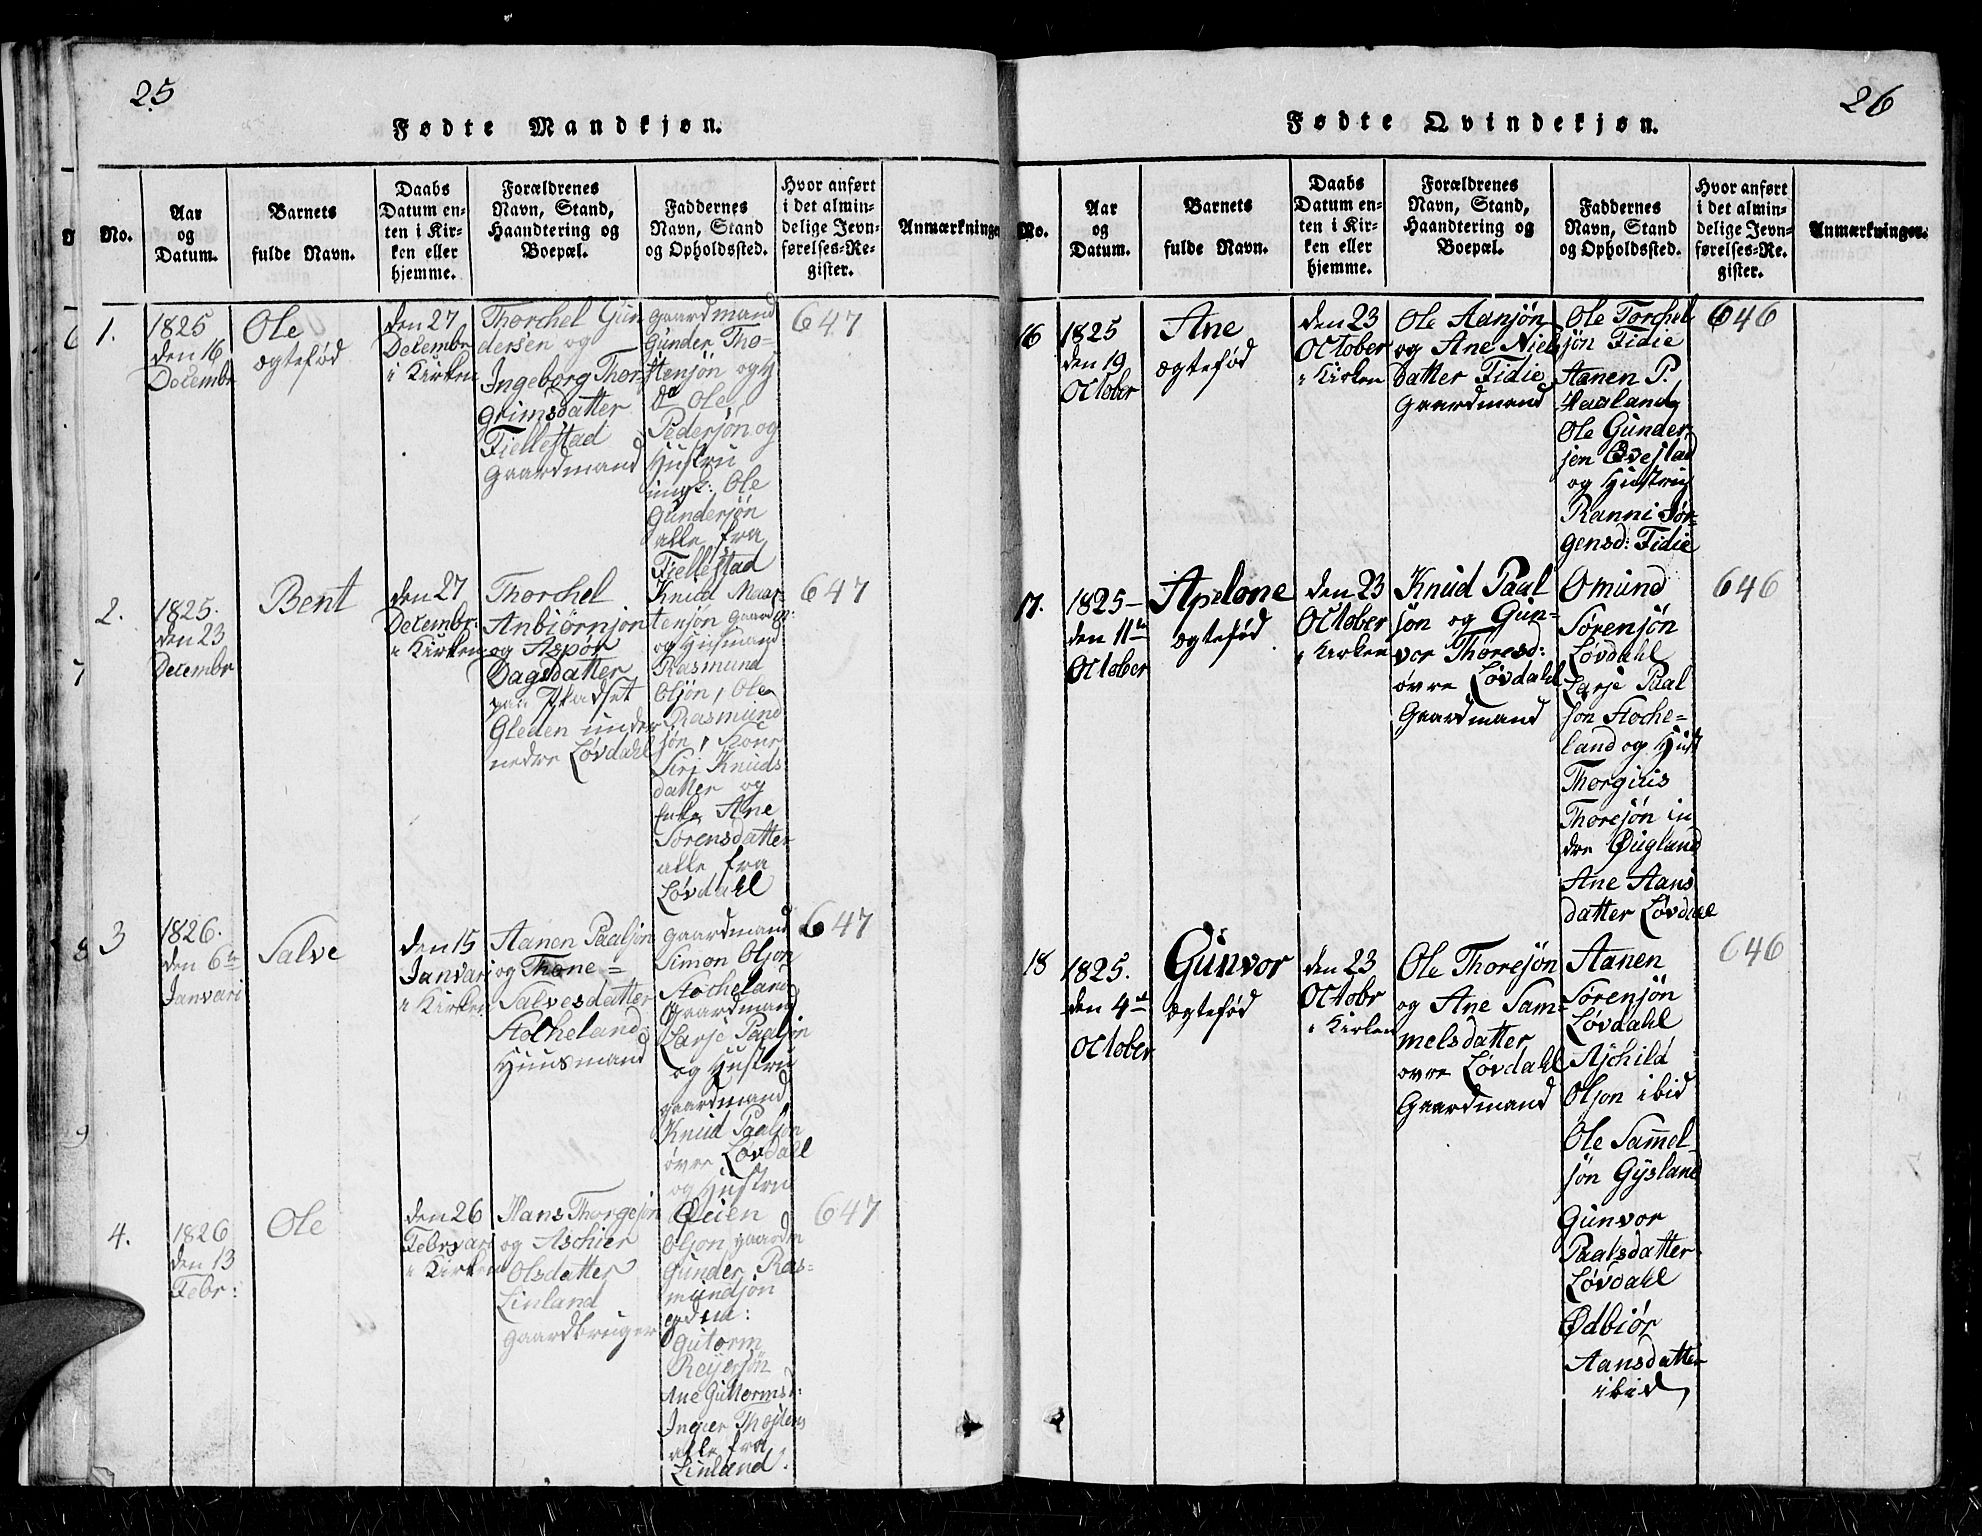 25
Fødte Mandkjøn.
No.
Aar
og
Datum.
Barnets
fulde Navn.
Daabs
Datum en-
ten i Kir-
ken eller
hjemme.
Forældrenes
Navn, Stand,
Haandtering og
Boepæl.
Faddernes
Navn, Stand
og Opholdssted.
Hvor anført
i det almin-
delige Jevn-
førelses-Re-
gister.
Anmærkninge
1.
1825
den 16
Decembr
Ole
ægtefød
den 27
Decembr
i Kirken
Thorchel Gun
dersen og
Ingeborg Thor
grimsdatter
Fiellestad
Gaardmand
gaardmand
Gunder Tho-
stensøn og
Ole
Pedersøn og
Hustru
ungk: Ole
Gundersøn
alle fra
Fiellestad
647
2.
1825.
den 23
Decembr
Bent
den 27
Decembr.
i Kirken
Thorchel
Anbiørnsøn
og Aspor
Dagsdatter
paa Pladset
Gleden under
nedre Løvdahl
Knud Maar-
tensøn gaardm:
og Husmand
Rasmund
Olsøn, Ole
Rasmund
søn,
Siri Knuds
datter og
Enke Ane
Sørensdatter
alle fra
Løvdahl
647
3
1826.
den 6te
Janvari
Salve
den 15
Janvari
i Kirken
Aanen Paalsøn
og Thone=
Salvesdatter
Stocheland
Huusmand
gaardmand
Simon Olson
Stocheland
Gaardmand
Larse Paalsøn
og Hustru
gaardmand
Knud Paalsøn
øvre Løvdahl
og Hustru
647
4.
1826
den 13
Febr:
Ole
den 26
Febrvari
i Kirken
Hans Thorgesøn
og Aschier
Olsdatter
Linland
gaardbruger
Øeien
Olson gaardm
Gunder Ras-
mundsøn
Gutorm
Reijersøn
Ane Guttormsd:
Inger Thostens
alle fra
Linland.
647
26
Fødte Qvindekjøn.
No.
Aar
og
Datum.
Barnets
fulde Navn.
Daabs
Datum en-
ten i Kir-
ken eller
hjemme.
Forældrenes
Navn, Stand,
Haandtering og
Boepæl.
Faddernes
Navn, Stand
og Opholdssted.
Hvor anført
i det almin-
delige Jevn-
førelses-Re-
gister.
Anmærkninger.
16
1825
den 19
October
Ane
ægtefød
den 23
October
i Kirken
Ole Aansøn
og Ane Niels
datter Fidie
Gaardmand
Ole Torchel
søn Fidie
Aanen P.
Haaland
Ole Gunder
sen Qvestad
og Hustru
Ranni Jør-
gensd: Fidie
646
17.
1825-
den 11te
October
Apelone
ægtefød
den 23
October
i Kirken
Knud Paal
søn og Gun-
vor Thoresd:
øvre Løvdahl
Gaardmand
Omund
Sørensøn
Løvdahl
Larse Paal
søn Stoche=
land og Hust
Thorgius
Thoresøn in
dre Øugland
Ane Aans
datter Løvdahl
646
18
1825.
den 4de
October
Gunvor
ægtefød
den 23
Octobr
i Kirken
Ole Thoresøn
og Ane Sam-
melsdatter
øvre Løvdahl
Gaardmand
Aanen
Sørensøn
Løvdahl
Aschild
Olson ibid
Ole Sammel
søn Gysland
Gunvor
Paalsdatter
Løvdahl
Ødbiør
Aansdatter
ibid
646